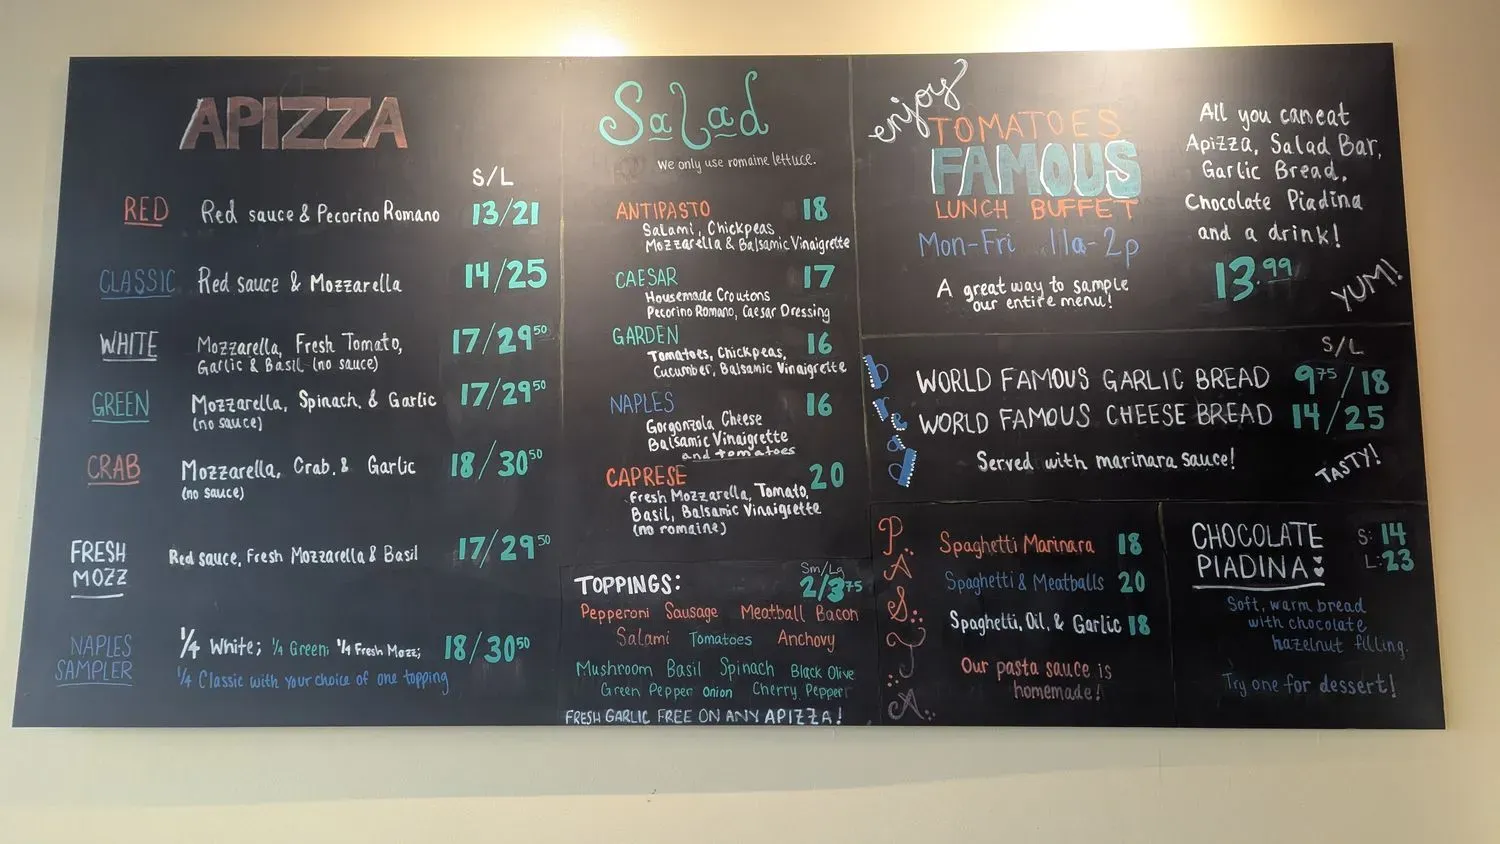 APIZZA
S/L
RED Red sauce & Pecorino Romano 13/21
CLASSIC Red sauce & Mozzarella 14/25
WHITE Mozzarella, Fresh Tomato, 17/29⁵⁰
Garlic & Basil (no sauce)
GREEN Mozzarella, Spinach, & Garlic 17/29⁵⁰
(no sauce)
CRAB Mozzarella, Crab, & Garlic 18/30⁵⁰
(no sauce)
FRESH
MOZZ
Red sauce, Fresh Mozzarella & Basil 17/29⁵⁰
NAPLES
SAMPLER
1/4 White; 1/4 Green; 1/4 Fresh Mozz; 18/30⁵⁰
1/4 Classic with your choice of one topping
Salad
We only use romaine lettuce.
ANTIPASTO 18
Salami, Chickpeas
Mozzarella & Balsamic Vinaigrette
CAESAR 17
Housemade Croutons
Pecorino Romano, Caesar Dressing
GARDEN 16
Tomatoes, Chickpeas,
Cucumber, Balsamic Vinaigrette
NAPLES 16
Gorgonzola Cheese
Balsamic Vinaigrette
and tomatoes
CAPRESE 20
Fresh Mozzarella, Tomato,
Basil, Balsamic Vinaigrette
(no romaine)
Sm/Lg
TOPPINGS: 2/3⁷⁵
Pepperoni Sausage Meatball Bacon
Salami Tomatoes Anchovy
Mushroom Basil Spinach Black Olive
Green Pepper Onion Cherry Pepper
FRESH GARLIC FREE ON ANY APIZZA!
enjoy
TOMATOES
FAMOUS
LUNCH BUFFET
Mon-Fri 11a-2p
A great way to sample
our entire menu!
All you can eat
Apizza, Salad Bar,
Garlic Bread,
Chocolate Piadina
and a drink!
13.⁹⁹
YUM!
bread
S/L
WORLD FAMOUS GARLIC BREAD 9⁷⁵/18
WORLD FAMOUS CHEESE BREAD 14/25
Served with marinara sauce!
TASTY!
PASTA
Spaghetti Marinara 18
Spaghetti & Meatballs 20
Spaghetti, Oil, & Garlic 18
Our pasta sauce is
homemade!
CHOCOLATE
PIADINA:
S: 14
L: 23
Soft, warm bread
with chocolate
hazelnut filling.
Try one for dessert!